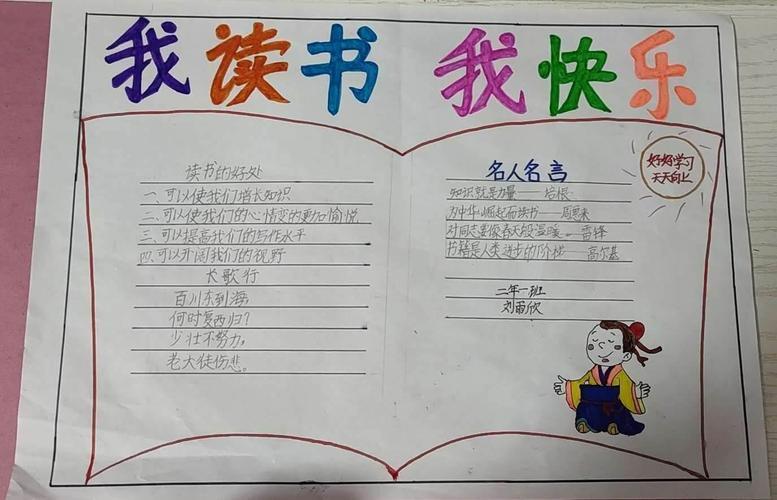 我读书 我快乐
读书的好处
一.可以使我们增长知识
二.可以使我们的心情变的更加愉悦
三.可以提高我们的写作水平
四.可以开阔我们的视野
长歌行
百川东到海,
何时复西归?
少壮不努力,
老大徒伤悲。
名人名言
知识就是力量——培根
为中华崛起而读书——周恩来
对同志要像春天般温暖。——雷锋
书籍是人类进步的阶梯——高尔基
二年一班
刘雨欣
好好学习
天天向上